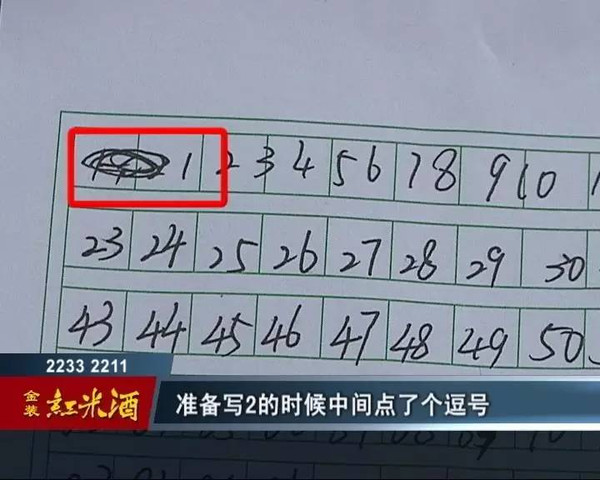 1 2 3 4 5 6 7 8 9 10
23 24 25 26 27 28 29 30
43 44 45 46 47 48 49 50
2233 2211
金装 红米酒
准备写2的时候中间点了个逗号